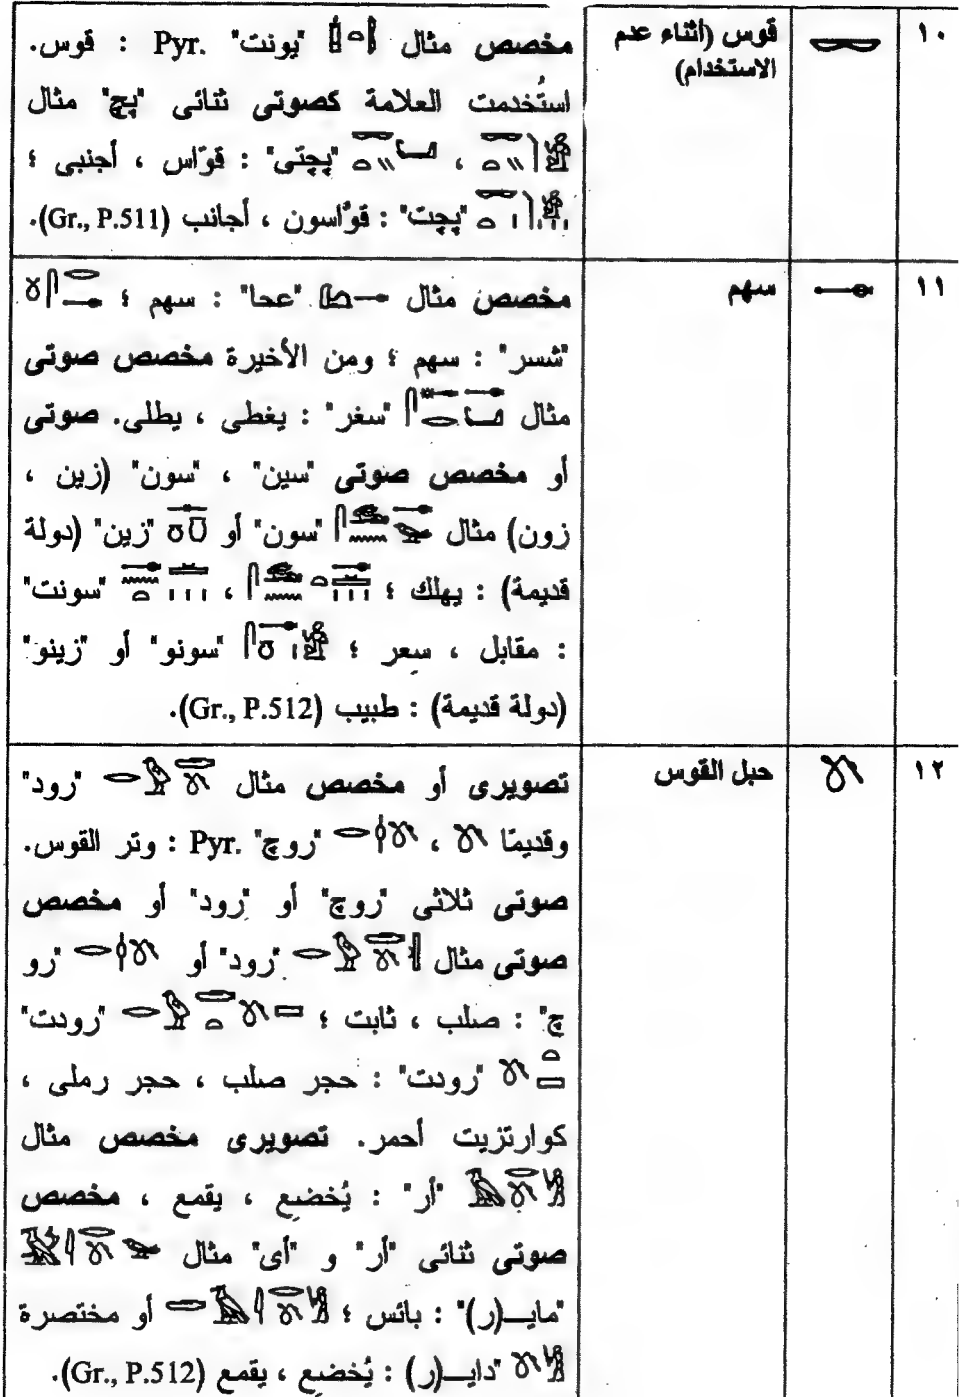 ١٠
قوس (اثناء عدم
الاستخدام)
مخصص مثال "يونت" Pyr. : قوس.
استُخدمت العلامة كصوتى ثنائى "پچ" مثال
، "پچتى" : قوّاس ، أجنبى ؛
"پچت" : قوّاسون ، أجانب (Gr., P.511).
١١
سهم
مخصص مثال "عحا" : سهم ؛
"شسر" : سهم ؛ ومن الأخيرة مخصص صوتى
مثال "سغر" : يغطى ، يطلى. صوتى
أو مخصص صوتى "سين" ، "سون" (زين ،
زون) مثال "سون" أو "زين" (دولة
قديمة) : يهلك ؛ ، "سونت"
: مقابل ، سعر ؛ "سونو" أو "زينو"
(دولة قديمة) : طبيب (Gr., P.512).
١٢
حبل القوس
تصويرى أو مخصص مثال "رود"
وقديمًا ، "روچ" Pyr. : وتر القوس.
صوتى ثلاثى "روچ" أو "رود" أو مخصص
صوتى مثال "رود" أو "رو
چ" : صلب ، ثابت ؛ "رودت"
"رودت" : حجر صلب ، حجر رملى ،
كوارتزيت أحمر. تصويرى مخصص مثال
"أر" : يُخضع ، يقمع ، مخصص
صوتى ثنائى "أر" و "أى" مثال
"مايــ(ر)" : بائس ؛ أو مختصرة
"دايــ(ر) : يُخضع ، يقمع (Gr., P.512).